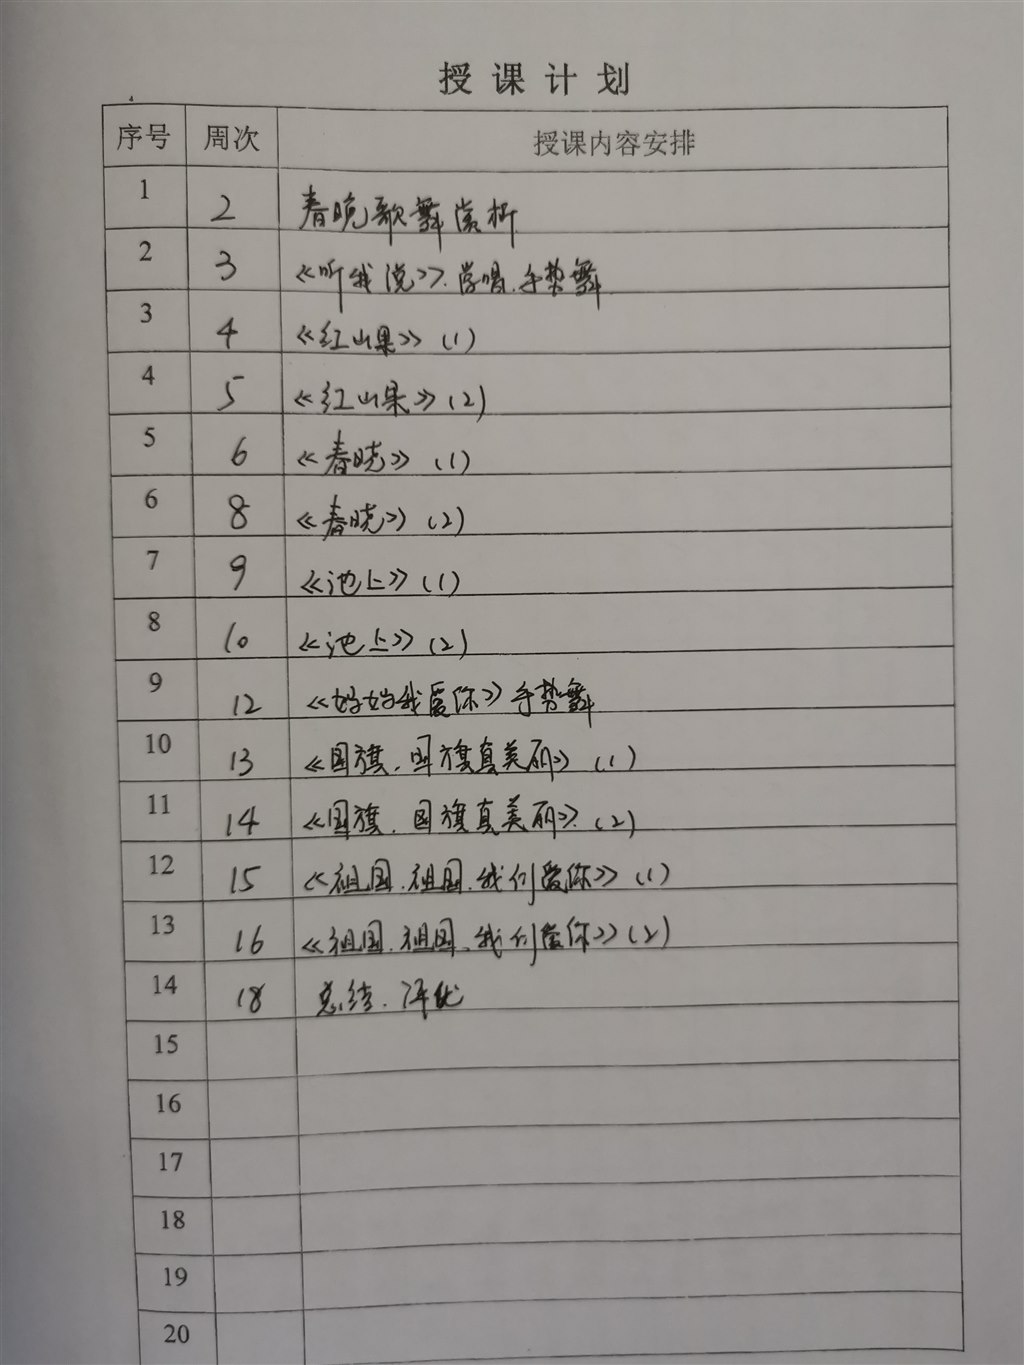 授课计划
序号 周次 授课内容安排
1 2 春晚歌舞赏析
2 3 《听我说》.学唱.手势舞
3 4 《红山果》(1)
4 5 《红山果》(2)
5 6 《春晓》(1)
6 8 《春晓》(2)
7 9 《池上》(1)
8 10 《池上》(2)
9 12 《妈妈我爱你》手势舞
10 13 《国旗.国旗真美丽》(1)
11 14 《国旗.国旗真美丽》(2)
12 15 《祖国.祖国.我们爱你》(1)
13 16 《祖国.祖国.我们爱你》(2)
14 18 总结.评优
15
16
17
18
19
20